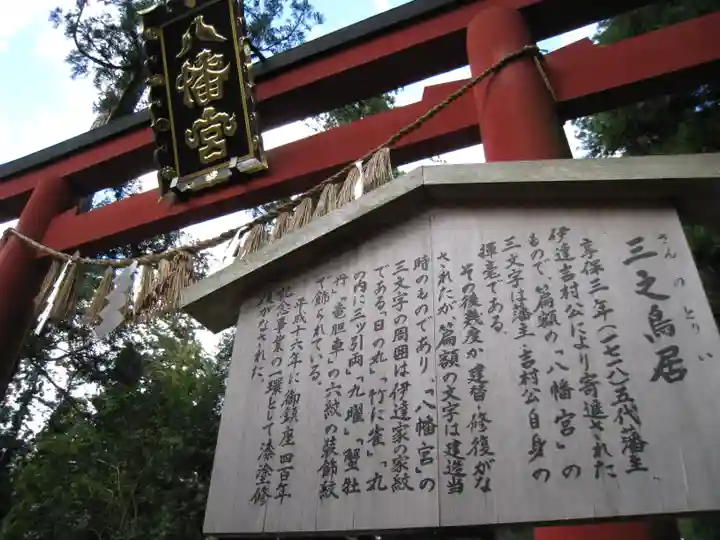 八幡宮
三之鳥居
さんのとりい
享保三年(一七一八)五代藩主
伊達吉村公により寄進された
もので、篇額の「八幡宮」の
三文字は藩主・吉村公自身の
揮毫である。
その後幾度か建替・修復がな
されたが篇額の文字は建造当
時のものであり、「八幡宮」の
三文字の周囲は伊達家の家紋
である「日の丸」「竹に雀」「丸
の内に三ッ引両」「九曜」「蟹牡
丹」「竜胆車」の六紋の装飾紋
で飾られている。
平成十六年に御鎮座四百年
記念事業の一環として漆塗修
復がなされた。